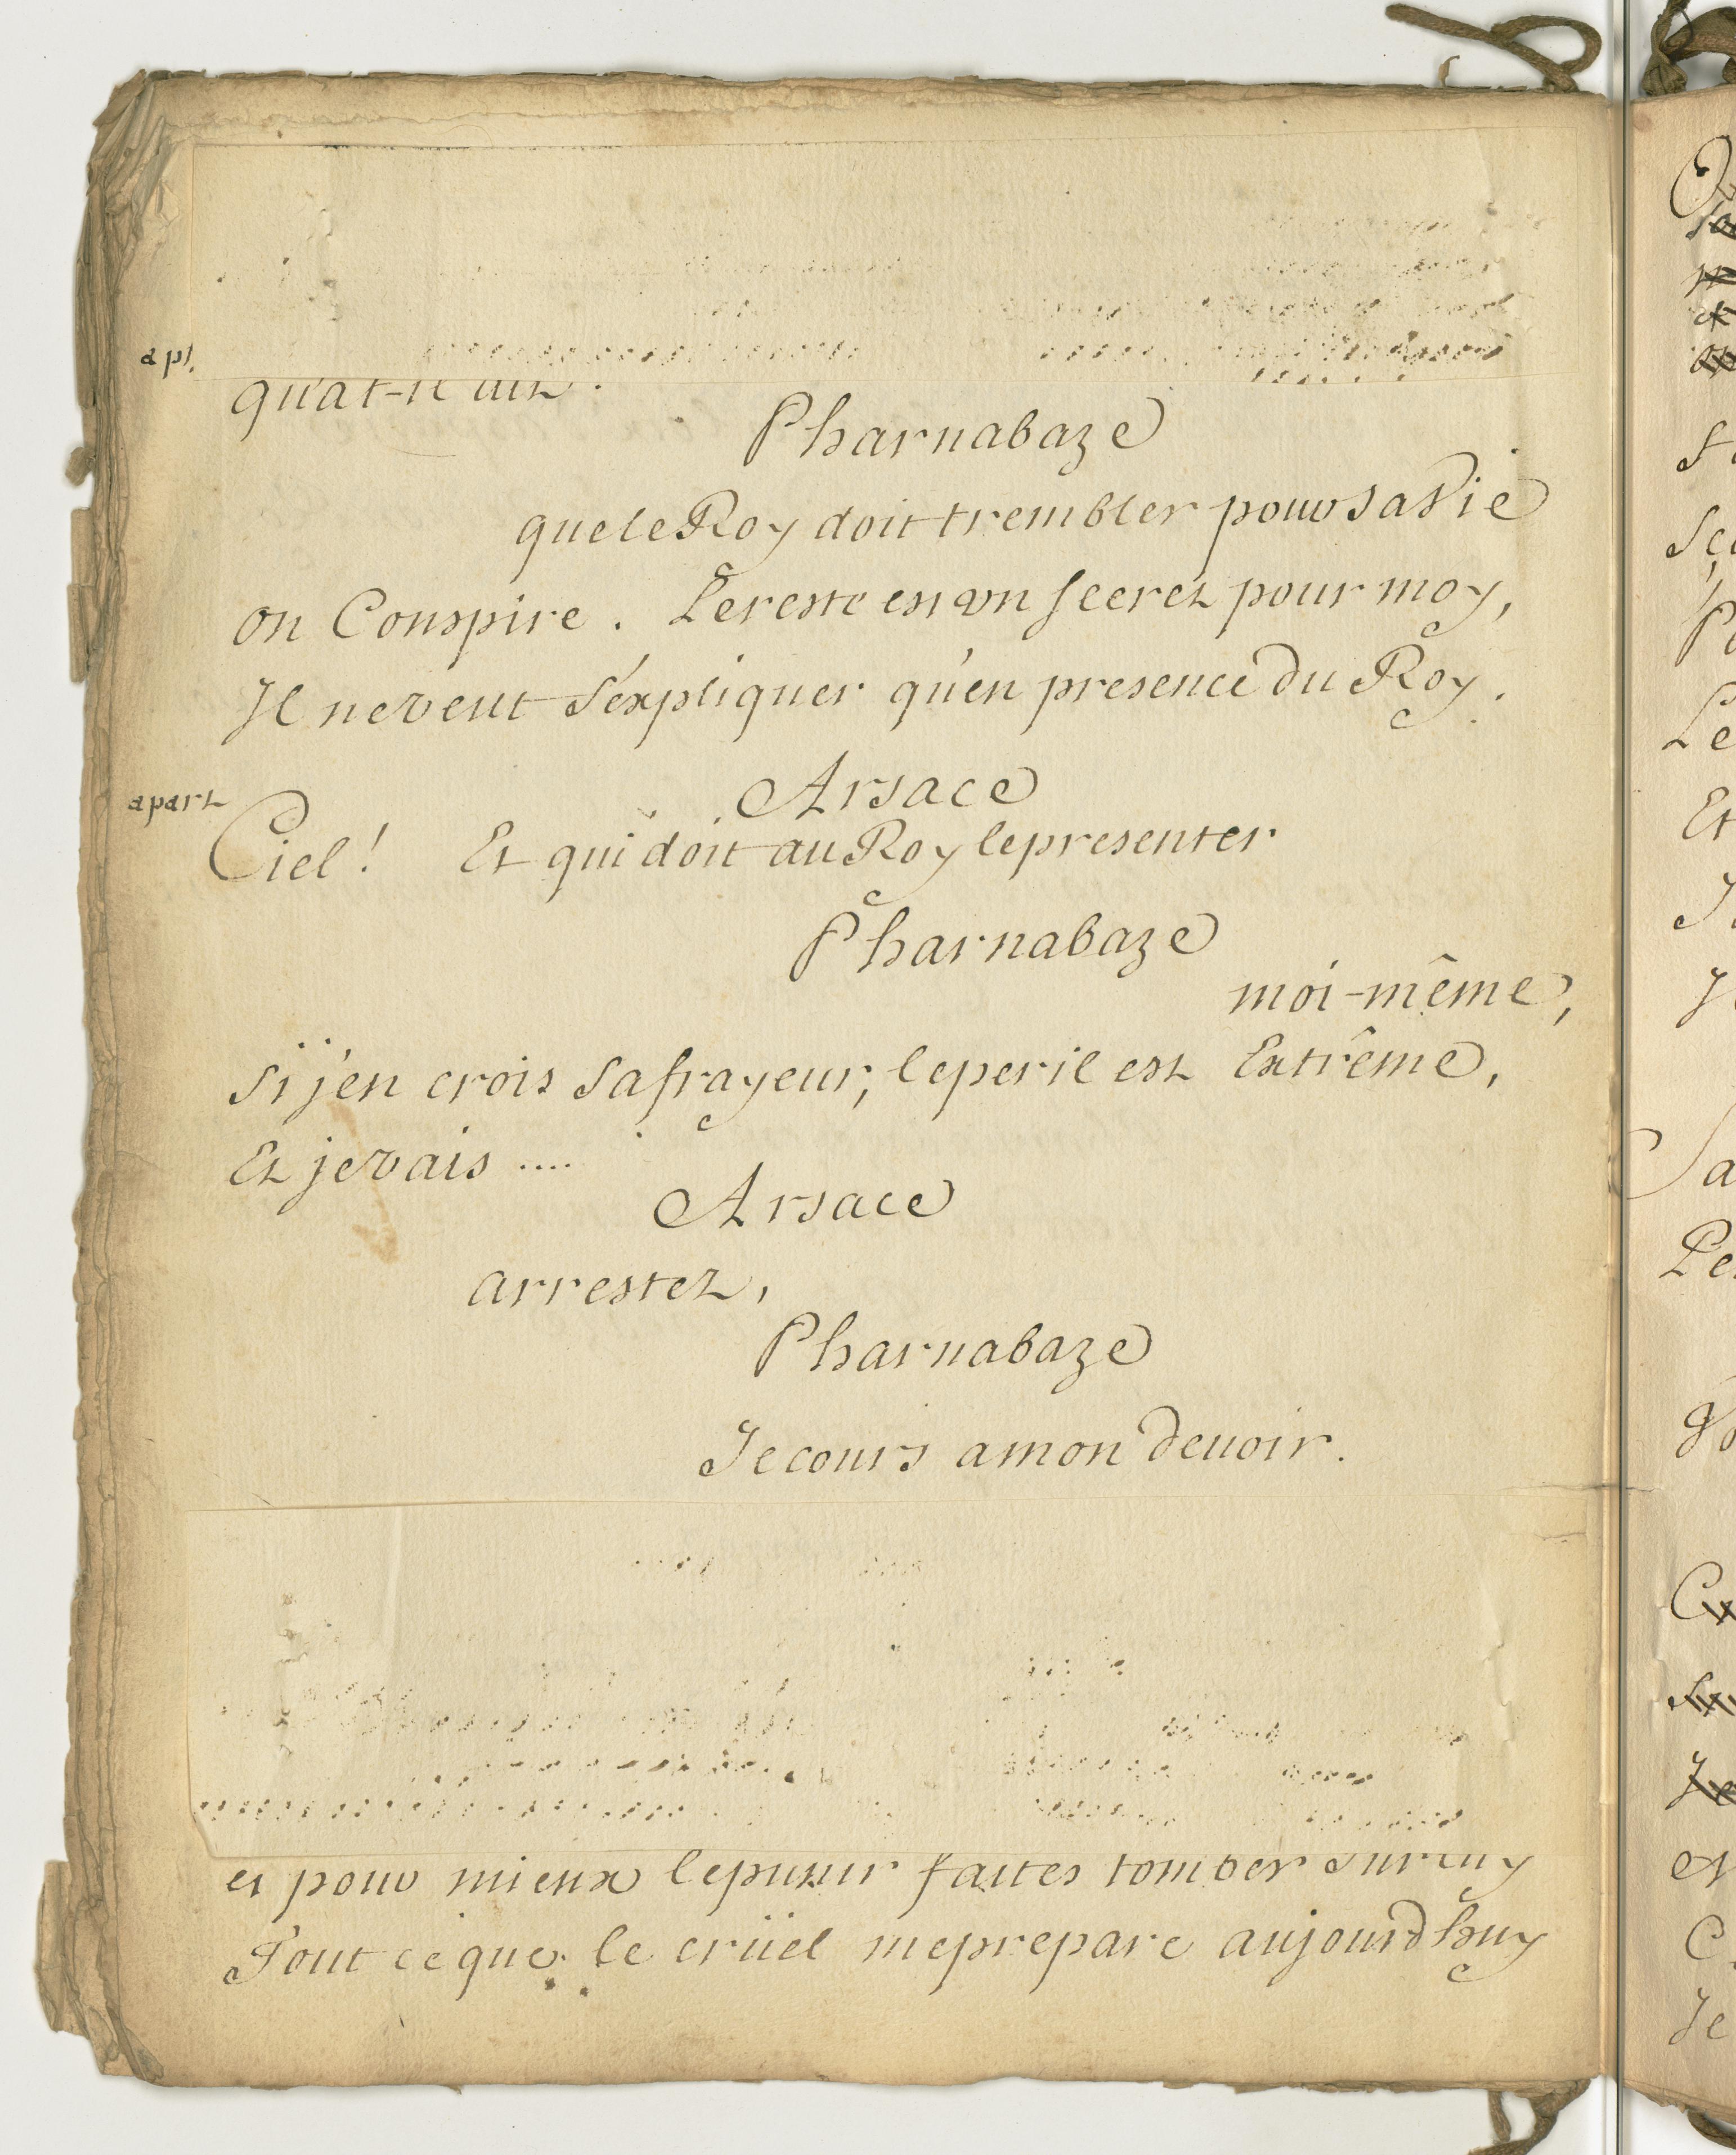 apt.
qu'at-il dit.
Pharnabaze
que le Roy doit trembler pour sa vie
on Conspire. Le reste est un secret pour moy,
Il ne veut s'expliquer qu'en presence du Roy.
Arsace
apart
Ciel! Et qui doit au Roy le presenter
Pharnabaze
moi-même,
si j'en crois sa frayeur, le peril est Extrême,
Et je vais ....
Arsace
arrestez,
Pharnabaze
Je cours a mon devoir.
et pour mieux le punir faites tomber sur luy
Tout ce que le crüel me prepare aujourd'huy